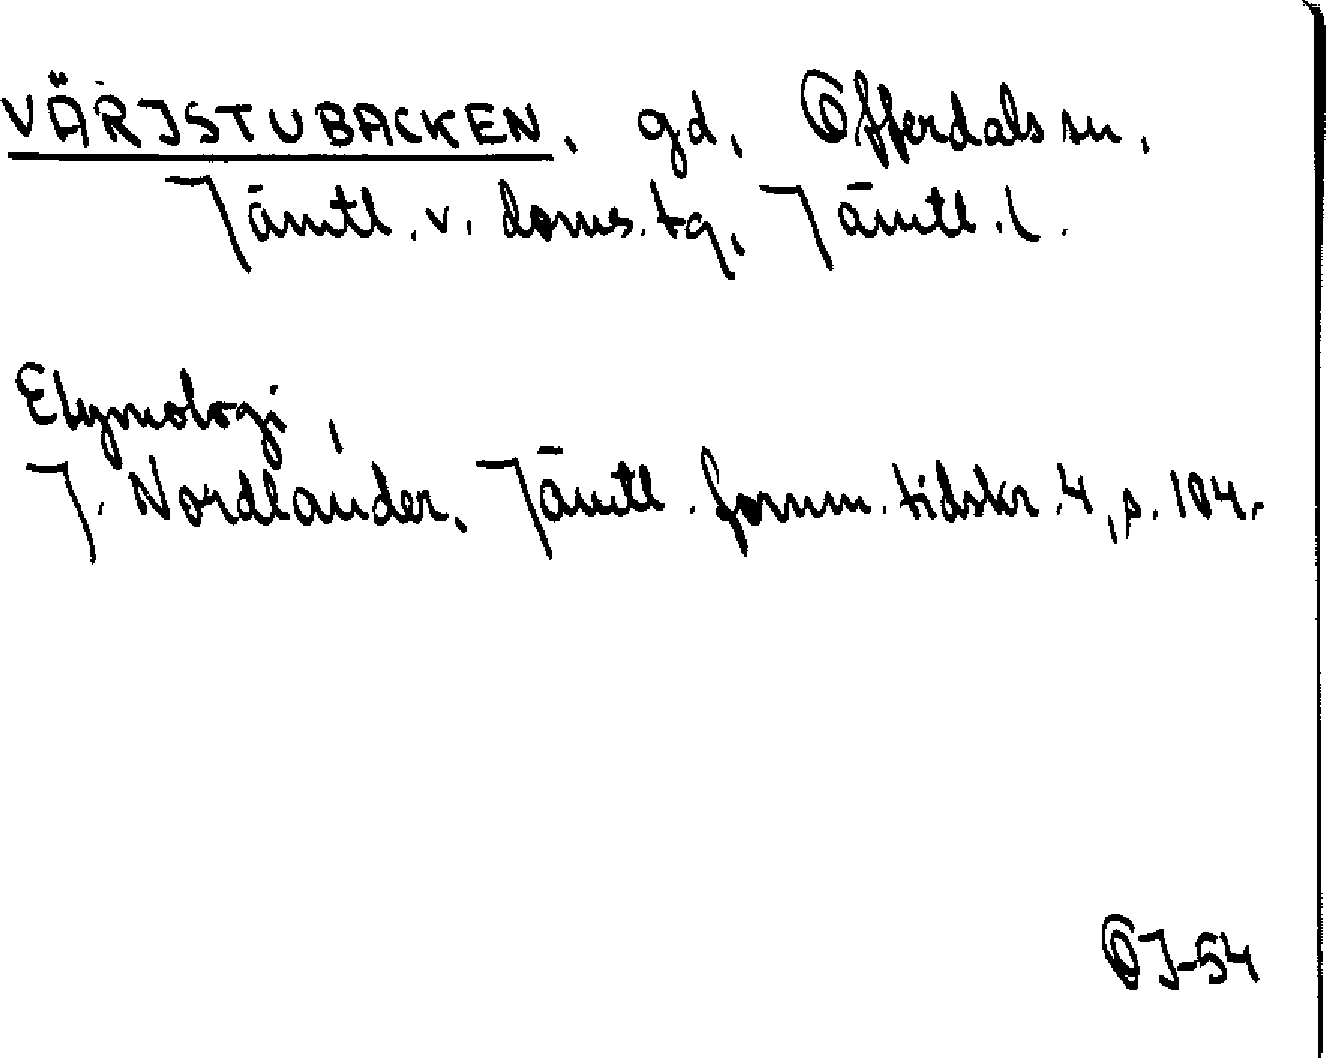 VÄRJSTUBACKEN, gd, Offerdals sn,
Jämtl. v. doms. tg, Jämtl. l.
Etymologi,
J. Nordlander, Jämtl. fornm. tidskr. 4, s. 104.
OJ-54